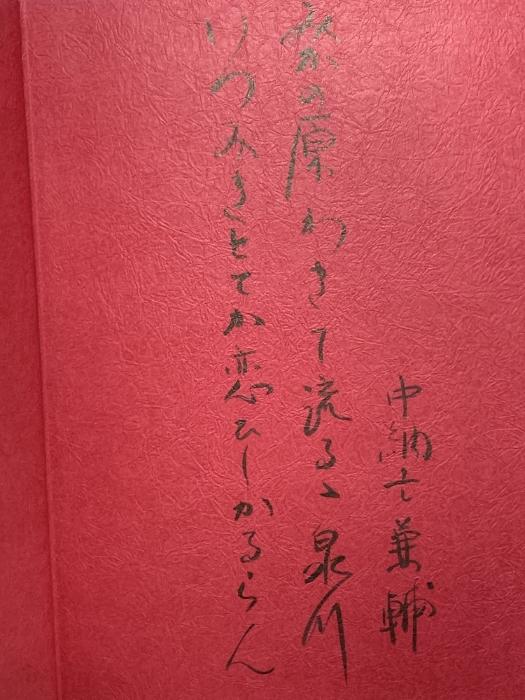 中納言兼輔
みかの原わきて流るゝ泉川
いつみきとてか恋ひしかるらん